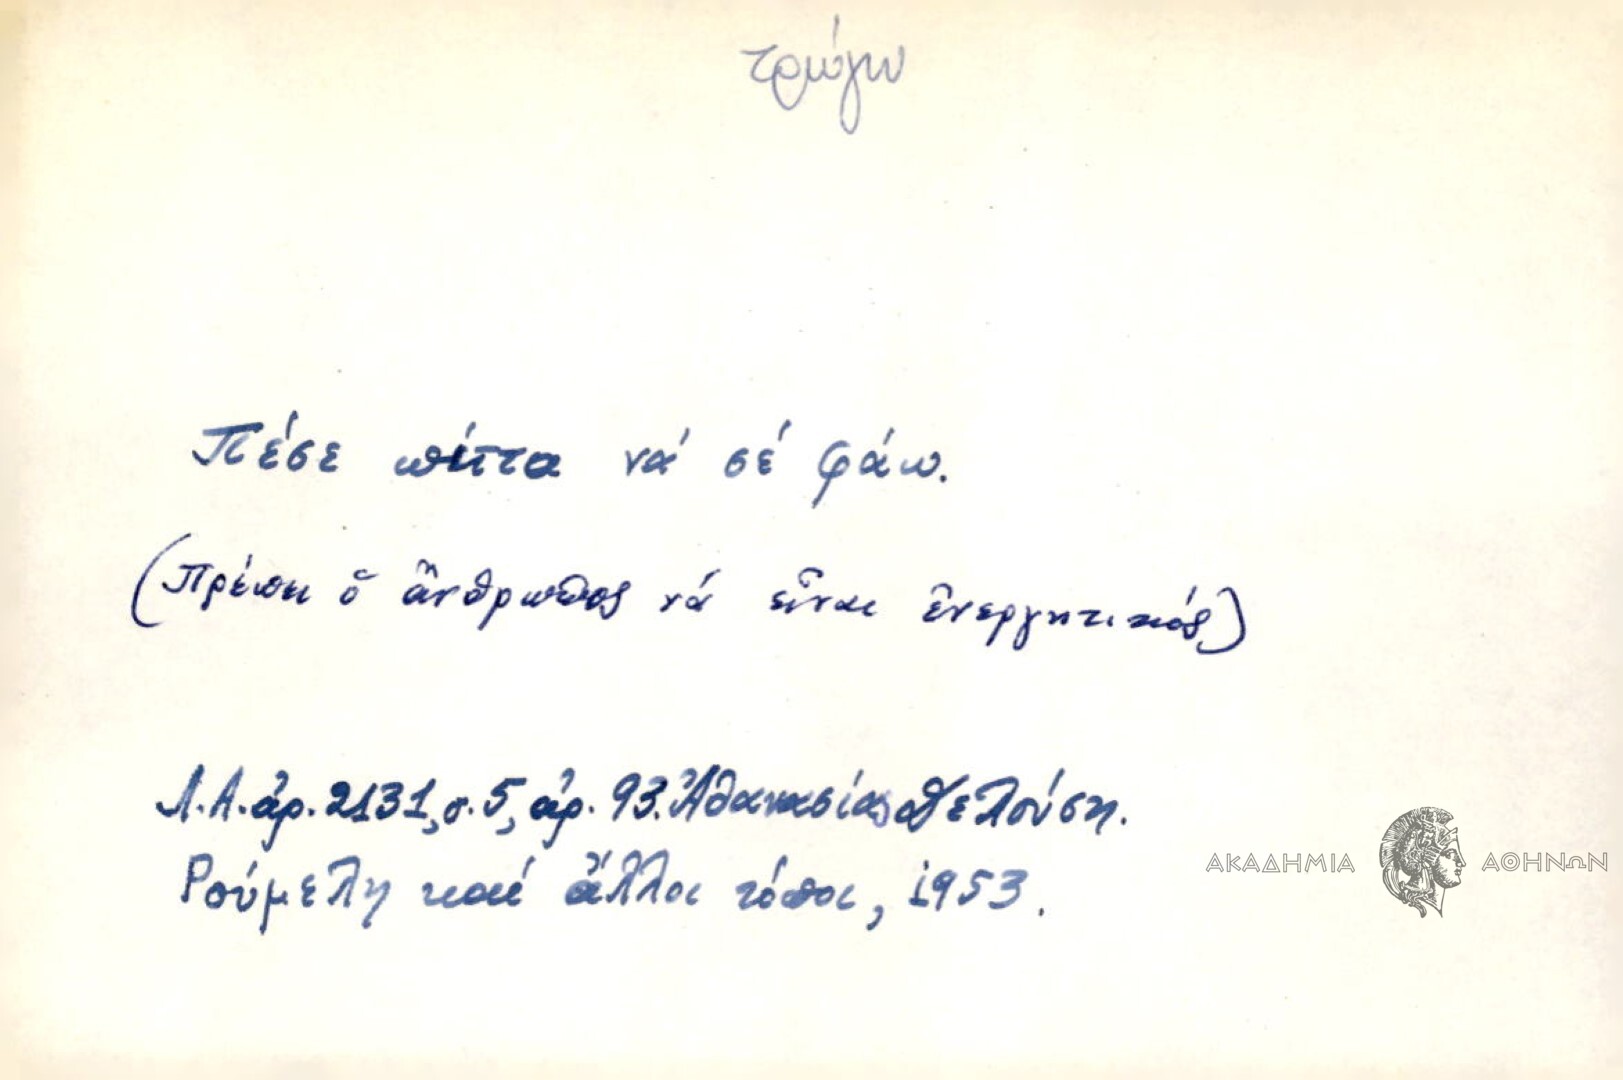 τρώγω
Πέσε πίττα νά σέ φάω.
(Πρέπει ὁ ἄνθρωπος νά εἶναι ἐνεργητικός)
Λ.Α. ἀρ. 2131, σ. 5, ἀρ. 93. Ἀθανασίας
Ρούμελη καί ἄλλοι τόποι, 1953.
ΑΚΑΔΗΜΙΑ ΑΘΗΝΩΝ